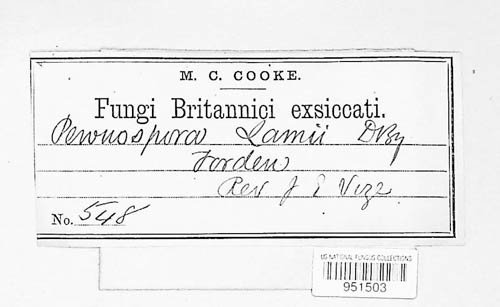 M. C. COOKE.
Fungi Britannici exsiccati.
Peronospora Lamii DBy
Forden
Rev J E Vize
No. 548
US NATIONAL FUNGUS COLLECTIONS
951503